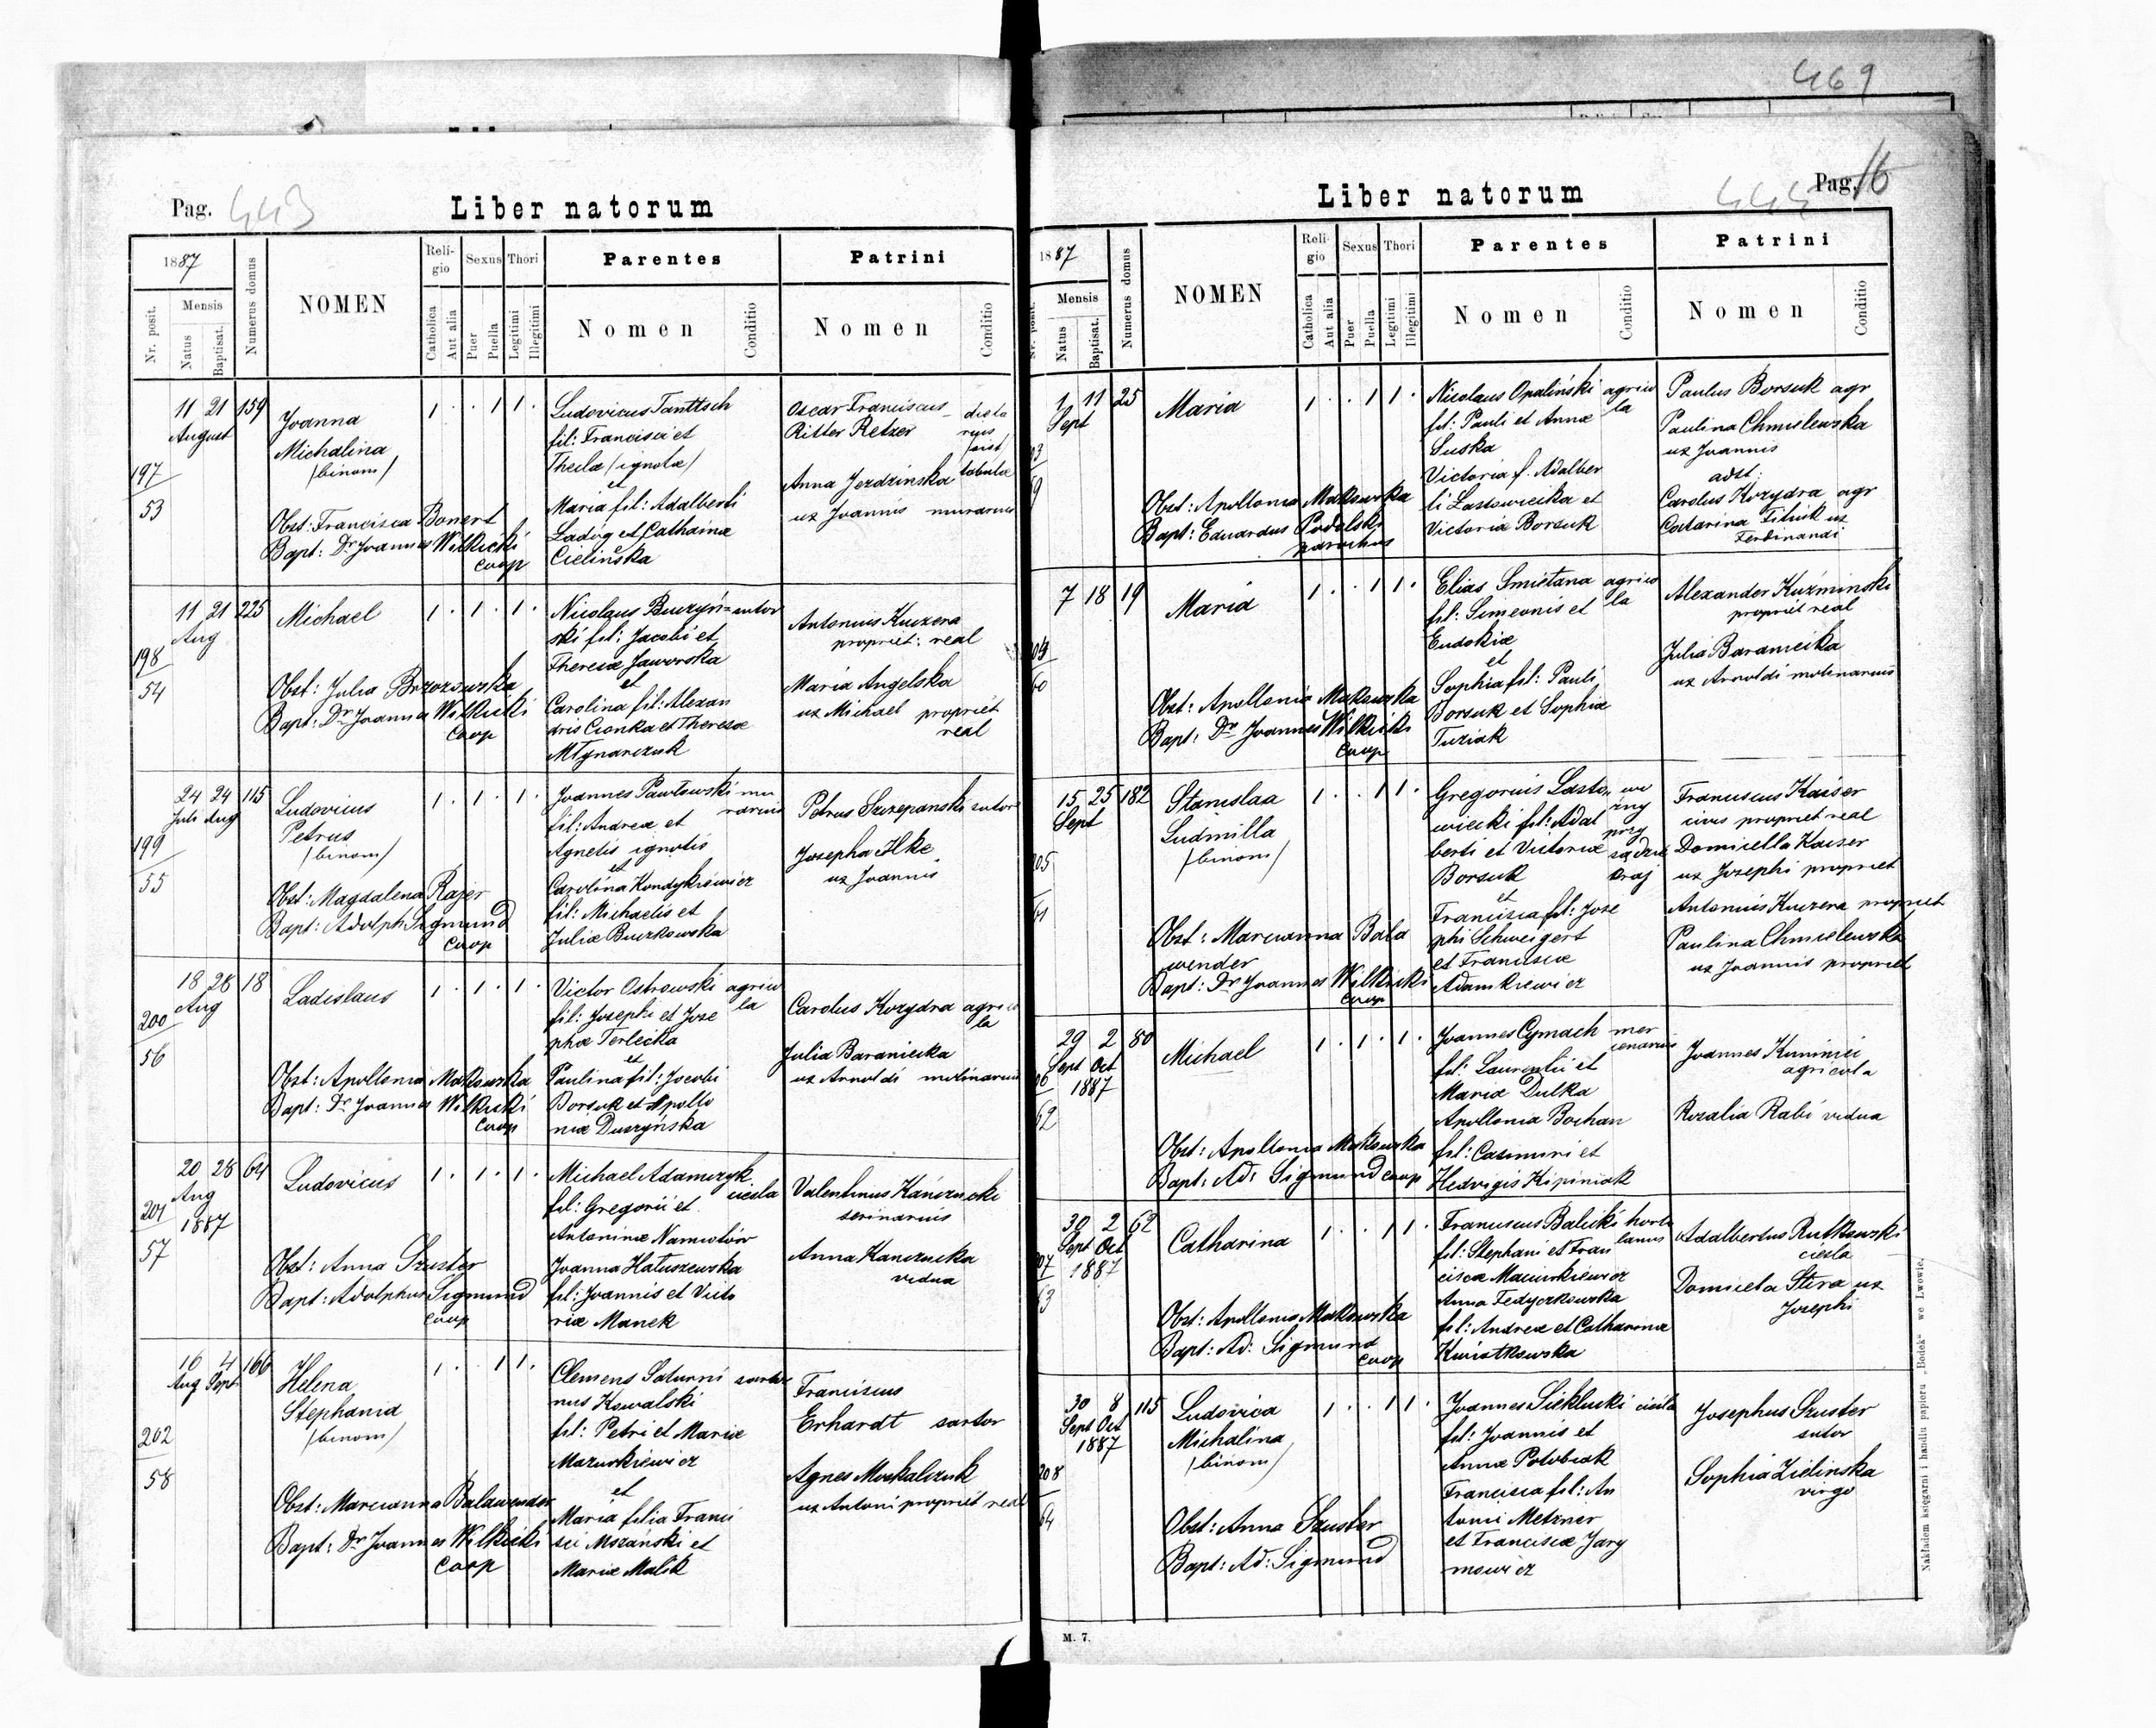 469
Pag. 443
Liber natorum
1887
Nr. posit.
Mensis
Natus
Baptisat.
Numerus domus
NOMEN
Religio
Catholica
Aut alia
Sexus
Puer
Puella
Thori
Legitimi
Illegitimi
Parentes
Nomen
Conditio
Patrini
Nomen
Conditio
197
53
11 21 159
August
Joanna
Michalina
/binom/
Obst: Francisca Bonert
Bapt: Dr Joannes Wilkicki
Coop
1 . . 1 1 .
Ludovicus Tanttsch
fil: Francisci et
Theilæ /ignotæ/
et
Maria fil: Adalberti
Ladóg et Catharinæ
Cielińska
Oscar Franciscus
Ritter Retzer
tabulæ
Anna Jerdzińska
ux Joannis murarius
198
54
11 21 225
Aug
Michael
Obst: Julia Brzozowska
Bapt: Dr Joannes Wilkicki
Coop
1 . 1 . 1 .
Nicolaus Buczyń= sutor
ski fil: Jacobi et
Theresæ Jaworska
et
Carolina fil: Alexan
dris Cionka et Theresæ
Młynarczuk
Antonius Kuczera
propriet: real
Maria Angelska
ux Michael propriet
real
199
55
24 24 115
Juli Aug
Ludovicus
Petrus
/binom/
Obst: Magdalena Rajer
Bapt: Adolph Sigmund
Coop
1 . 1 . 1 .
Joannes Pawłowski mu
rarius
fil: Andreæ et
Agnetis ignotis
et
Carolina Kondykiewicz
fil: Michaelis et
Juliæ Buczkowska
Petrus Szczepanski sutor
Josepha Ilke
ux Joannis
200
56
18 28 18
Aug
Ladislaus
Obst: Apollonia Makowska
Bapt: Dr Joannes Wilkicki
Coop
1 . 1 . 1 .
Victor Ostrowski agrico
la
fil: Josephi et Jose
phæ Terlecka
et
Paulina fil: Jacobi
Borsuk et Apollo
niæ Duszyńska
Carolus Kozydra agrico
la
Julia Baraniecka
ux Arnoldi molinarius
201
57
20 28 64
Aug
1887
Ludovicus
Obst: Anna Szuster
Bapt: Adolphus Sigmund
Coop
1 . 1 . 1 .
Michael Adamczyk
cieśla
fil: Gregorii et
Antoninæ Namiotów
Joanna Hatuszewska
fil: Joannis et Victo
riæ Manek
Valentinus Kańczucki
serinarius
Anna Kanczucka
vidua
202
58
16 4 166
Aug Sept
Helena
Stephania
/binom/
Obst: Marcianna Balawender
Bapt: Dr Joannes Wilkicki
Coop
1 . . 1 1 .
Clemens Saturni sartor
nus Kowalski
fil: Petri et Mariæ
Mazurkiewicz
et
Maria filia Franci
sci Mszański et
Mariæ Malik
Franciscus
Erhardt sartor
Agnes Moskalczuk
ux Antoni propriet real
Pag. 16
444
Liber natorum
1887
Nr. posit.
Mensis
Natus
Baptisat.
Numerus domus
NOMEN
Religio
Catholica
Aut alia
Sexus
Puer
Puella
Thori
Legitimi
Illegitimi
Parentes
Nomen
Conditio
Patrini
Nomen
Conditio
1 11 25
Sept
Maria
Obst: Apollonia Makowska
Bapt: Eduardus Podolski
parochus
1 . . 1 1 .
Nicolaus Opaliński agrico
la
fil: Pauli et Annæ
Suska
Victoria f. Adalber
ti Lassowiecka et
Victoriæ Borsuk
Paulus Borsuk agr
Paulina Chmielewska
ux Joannis
adst:
Carolus Kozydra agr
Catarina Fitiuk ux
Ferdinandi
7 18 19
Maria
60
Obst: Apollonia Makowska
Bapt: Dr Joannes Wilkicki
Coop
1 . . 1 1 .
Elias Smietana agrico
la
fil: Simeonis et
Eudokiæ
et
Sophia fil: Pauli
Borsuk et Sophiæ
Tuziak
Alexander Kuźminski
propriet real
Julia Baraniecka
ux Arnoldi molinarius
15 25 182
Sept
205
61
Stanislaa
Ludmilla
/binom/
Obst: Marcianna Bala
wender
Bapt: Dr Joannes Wilkicki
Coop
1 . . 1 1 .
Gregorius Lasto
wiecki fil: Adal
berti et Victoriæ
Borsuk
et
Francisca fil: Jose
phi Schweigert
et Franciscæ
Adamkiewicz
woźny
przy
sądzie
kraj
Franciscus Kaiser
civis propriet real
Domicella Kaiser
ux Josephi propriet
Antonius Kuczera propriet
Paulina Chmielewska
ux Joannis propriet
29 2 80
Sept Oct
1887
62
Michael
Obst: Apollonia Makowska
Bapt: Ad: Sigmund coop
1 . 1 . 1 .
Joannes Cymach mer
cenarius
fil: Laurentii et
Mariæ Dulka
Apollonia Bochan
fil: Casimiri et
Hedvigis Kipiniak
Joannes Kuminici
agricola
Rozalia Rabi vidua
30 2 62
Sept Oct
1887
63
Catharina
Obst: Apollonia Makowska
Bapt: Ad: Sigmund
Coop
1 . . 1 1 .
Franciscus Balicki hortu
lanus
fil: Stephani et Fran
ciscæ Maciurkiewicz
Anna Fedyczkowska
fil: Andreæ et Catharinæ
Kwiatkowska
Adalbertus Rutkowski
ciesla
Domicela Stira ux
Josephi
30 8 115
Sept Oct
1887
208
64
Ludovica
Michalina
/binom/
Obst: Anna Szuster
Bapt: Ad: Sigmund
1 . . 1 1 .
Joannes Siekłucki cieśla
fil: Joannis et
Annæ Potobiak
Francisca fil: An
tonii Metzner
et Franciscæ Jary
mowicz
Josephus Szuster
sutor
Sophia Zielinska
virgo
M. 7.
Nakładem księgarni i handlu papieru „Bodek“ we Lwowie.